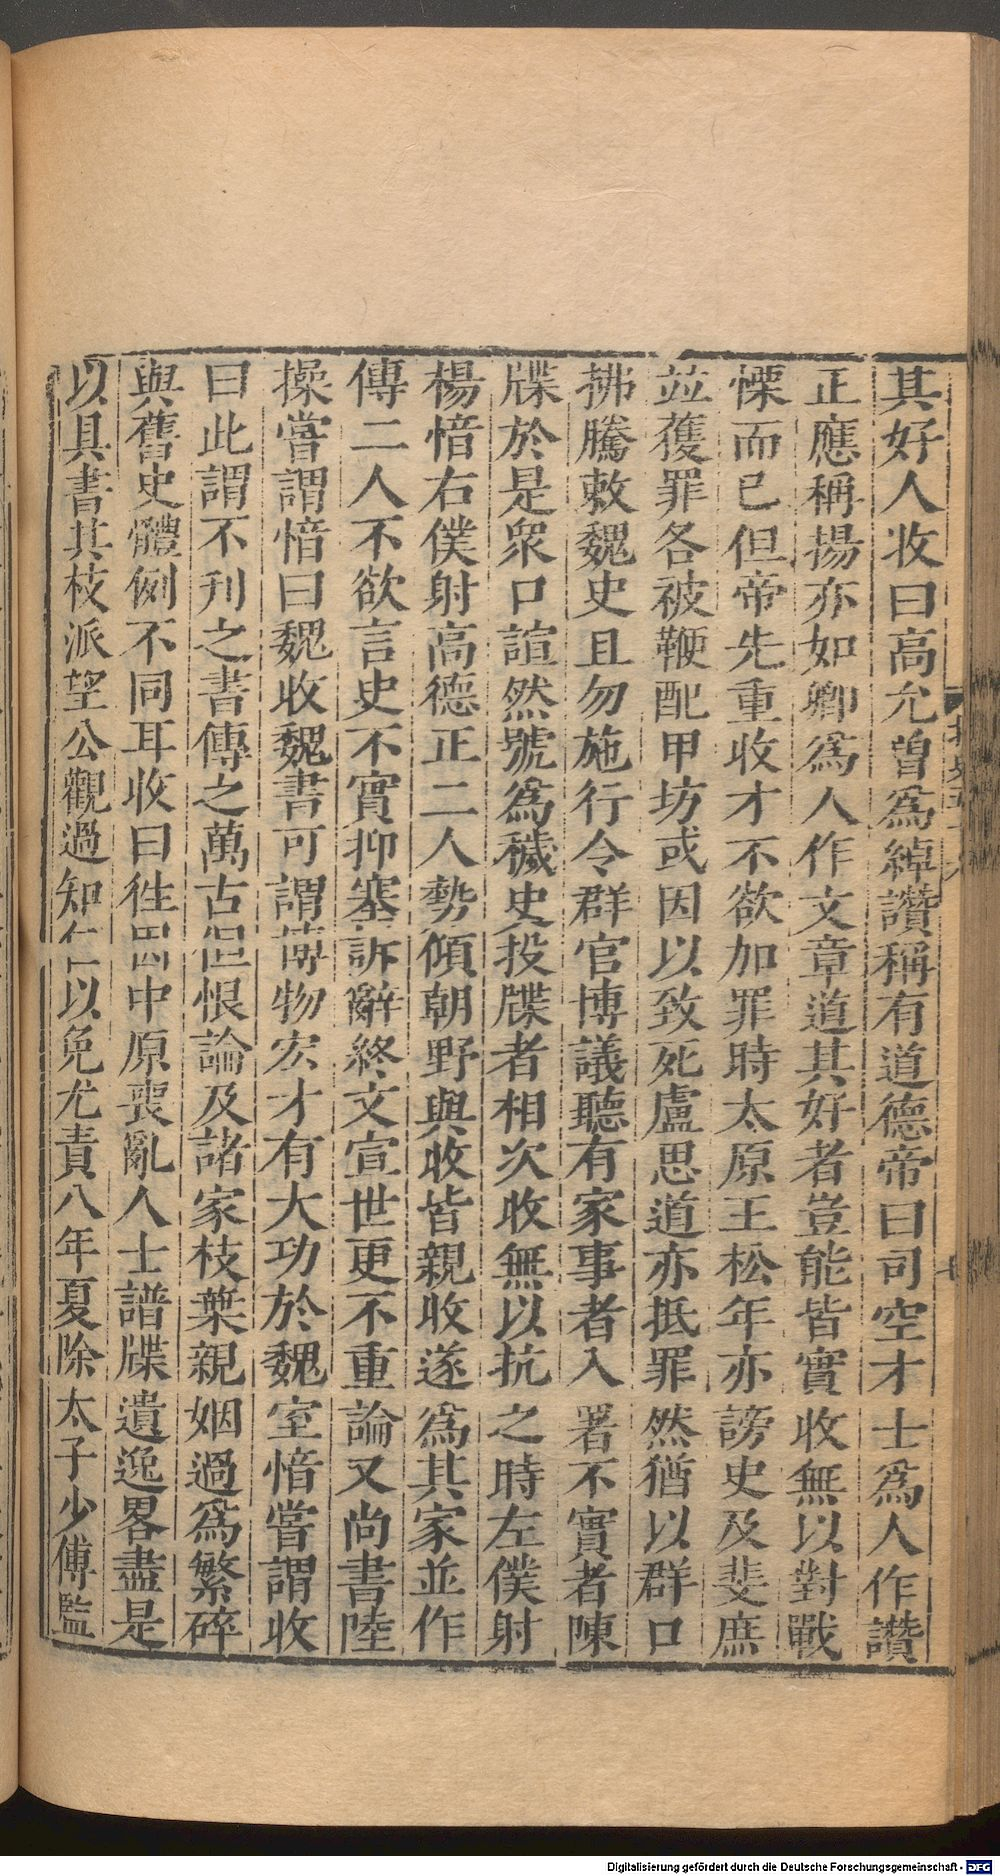 其好人收曰高允曽為綽讚稱有道德帝曰司空才士為人作讚
正應稱揚亦如卿為人作文章道其好者豈能皆實收無以對戰
慄而已但帝先重收才不欲加罪時太原王松年亦謗史及斐庶
並獲罪各被鞭配甲坊或因以致死盧思道亦抵罪然猶以群口
拂騰敕魏史且勿施行令群官博議聽有家事者入署不實者陳
牒於是衆口諠然號為穢史投牒者相次收無以抗之時左僕射
楊愔右僕射高德正二人勢傾朝野與收皆親收遂為其家並作
傳二人不欲言史不實抑塞訴辭終文宣世更不重論又尚書陸
操嘗謂愔曰魏收魏書可謂博物宏才有大功於魏室愔嘗謂收
曰此謂不刋之書傳之萬古但恨論及諸家枝葉親姻過為繁碎
與舊史體例不同耳收曰徃因中原喪亂人士譜牒遺逸畧盡是
以具書其枝派望公觀過知仁以免尤責八年夏除太子少傅監
Digitalisierung gefördert durch die Deutsche Forschungsgemeinschaft - DFG